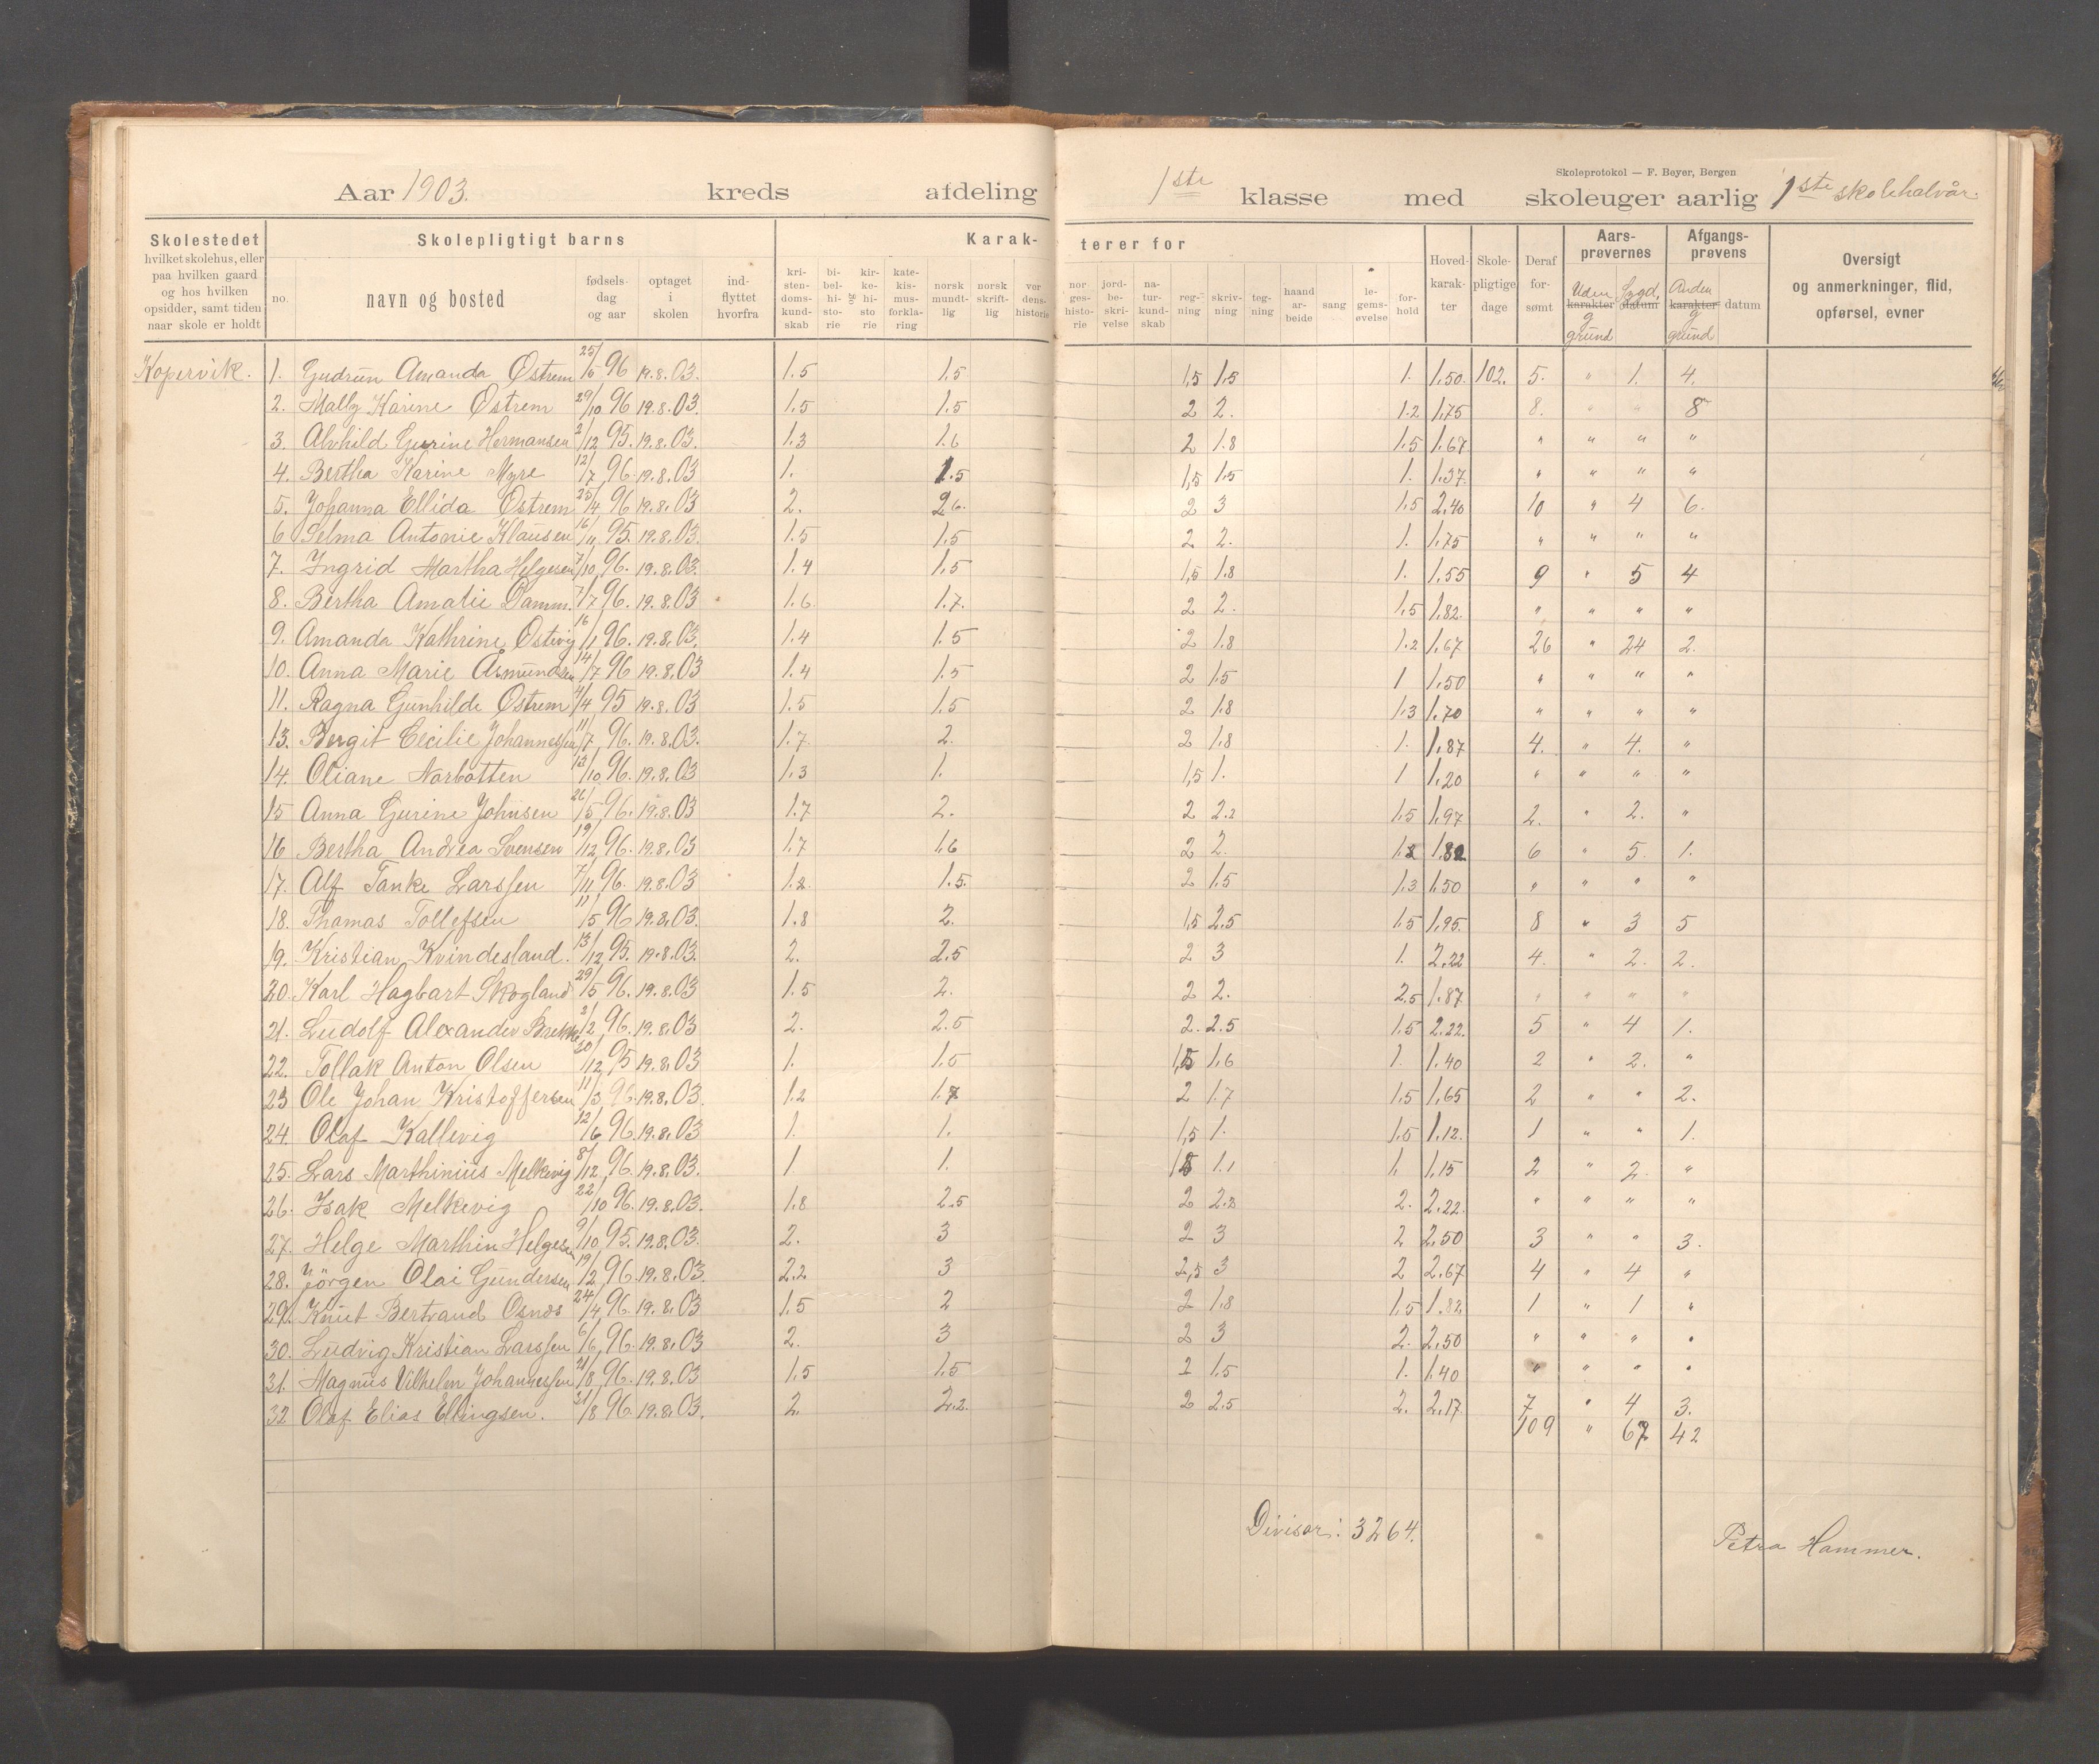 Skoleprotokol — F. Beyer, Bergen
Aar 1903. kreds afdeling 1ste klasse med skoleuger aarlig 1ste skolehalvår.
Skolestedet hvilket skolehus, eller paa hvilken gaard og hos hvilken opsidder, samt tiden naar skole er holdt
Skolepligtigt barns
no. navn og bosted fødsels-dag og aar optaget i skolen ind-flyttet hvorfra
Karakterer for
kri-sten-doms-kund-skab bi-bel-hi-sto-rie og kir-ke-hi-sto rie kate-kis-mus-forkla-ring norsk mundt-lig norsk skrift-lig ver dens-historie nor ges-histo-rie jord-be-skri-velse na-tur-kund-skab reg-ning skriv-ning teg-ning haand ar-beide sang le-gems-øvelse for-hold
Hoved-karak-ter Skole-pligtige dage Deraf for-sømt
Aars-prøvernes karakter datum Uden g grund Sygd.
Afgangs-prøvens karakter datum Anden g grund
Oversigt og anmerkninger, flid, opførsel, evner
Kopervik. 1. Gudrun Amanda Østrem 25/5 96 19.8.03. 1.5 1.5 1,5 1.5 1. 1.50. 102. 5. " 1. 4.
2. Mally Karine Østrem 29/10 96 19.8.03. 1.5 1.5 2 2. 1.2 1,75 8. " " 8
3. Alvhild Gurine Hermansen 2/12 95. 19.8.03. 1.3 1.6 2 1.8 1.5 1.67. " " " "
4. Bertha Karine Myre 12/7 96. 19.8.03 1. 1.5 1,5 1.5 1. 1.37. " " " "
5. Johanna Ellida Østrem 25/4 96 19.8.03 2. 2.6. 2 3 1.5 2,40 10 " 4 6.
6 Selma Antonie Klausen 16/11 95. 19.8.03. 1.5 1.5 2 2. 1. 1.75 " " " "
7. Ingrid Martha Helgesen 7/10 96. 19.8.03. 1.4 1.5 1,5 1.8 1. 1.55 9 " 5 4
8. Bertha Amalie Damm. 7/7 96. 19.8.03 1.6. 1.7. 2 2. 1.5 1,82. " " " "
9. Amanda Kathrine Østvig 16/1 96. 19.8.03. 1.4 1.5 2 1.8 1.2 1,67 26 " 24 2.
10. Anna Marie Asmundsen 14/7 96 19.8.03 1.4 1.5 2 1.5 1 1.50 " " " "
11. Ragna Gunhilde Østrem 4/4 95 19.8.03 1.5 1.5 2 1.8 1.3 1.70 " " " "
13. Bergit Cecilie Johannessen 11/7 96. 19.8.03. 1.7. 2. 2 1.8 1. 1.87 4. " 4. "
14. Oliane Norbotten 13/10 96. 19.8.03 1.3 1. 1,5 1. 1 1.20 " " " "
15 Anna Gurine Johnsen 26/5 96. 19.8.03 1.7 2. 2 2.2 1.5 1,97 2. " 2. "
16 Bertha Andrea Svensen 19/12 96. 19.8.03 1.7 1.6 2 2. 1.2 1.82 6 " 5. 1.
17. Alf Tanke Larssen 7/11 96. 19.8.03 1.2. 1.5. 2 1.5 1.3 1.50 " " " "
18. Thomas Tollefsen 11/5 96 19.8.03. 1.8 2. 1,5 2.5 1.5 1.95. 8 " 3 5
19. Kristian Kvindesland. 13/12 95. 19.8.03. 2. 2.5 2 3 1. 2.22 4. " 2. 2.
20. Karl Hagbart Skogland 29/5 96. 19.8.03 1.5 2. 2 2. 2,5 1.87 " " " "
21. Ludolf Alexander Brekke 2/2 96. 19.8.03 2. 2.5 2. 2.5 1.5 2.22. 5 " 4 1.
22. Tollak Anton Olsen 20/12 95 19.8.03 1. 1.5 1,5 1.6 1. 1.40 2 " 2. "
23 Ole Johan Kristoffersen 11/3 96. 19.8.03. 1.2 1.7 2 1.7 1.5 1.65 2 " " 2.
24. Olaf Kallevig 12/6 96. 19.8.03 1. 1. 1,5 1. 1.5 1.12. 1 " " 1.
25. Lars Marthinius Melkevig 8/12 96. 19.8.03. 1. 1. 1,5 1.1 1. 1.15 2 " 2. "
26. Isak Melkevig 22/10 96. 19.8.03. 1.8 2.5 2 2.2 2. 2.22. " " " "
27. Helge Marthin Helgesen 9/10 95. 19.8.03. 2. 3 2 3 2 2.50 3 " " 3.
28. Jörgen Olai Gundersen 19/2 96. 19.8.03. 2.2 3 2,5 3 2 2.67 4 " 4 "
29. Knut Bertrand Osnes 24/4 96. 19.8.03 1.5 2 2 1.8 1.5 1.82 1 " 1 "
30. Ludvig Kristian Larssen 6/6 96. 19.8.03 2. 3 2 3 2. 2.50 " " " "
31. Magnus Vilhelm Johannessen 21/8 96. 19.8.03 1.5 1.5 2 1.5 1. 1.40 " " " "
32 Olaf Elias Ellingsen. 31/8 96. 19.8.03. 2. 2.2. 2 2.5 2. 2.17. 7 " 4 3.
109 " 67 42
Divisor: 3264.
Petra Hammer.